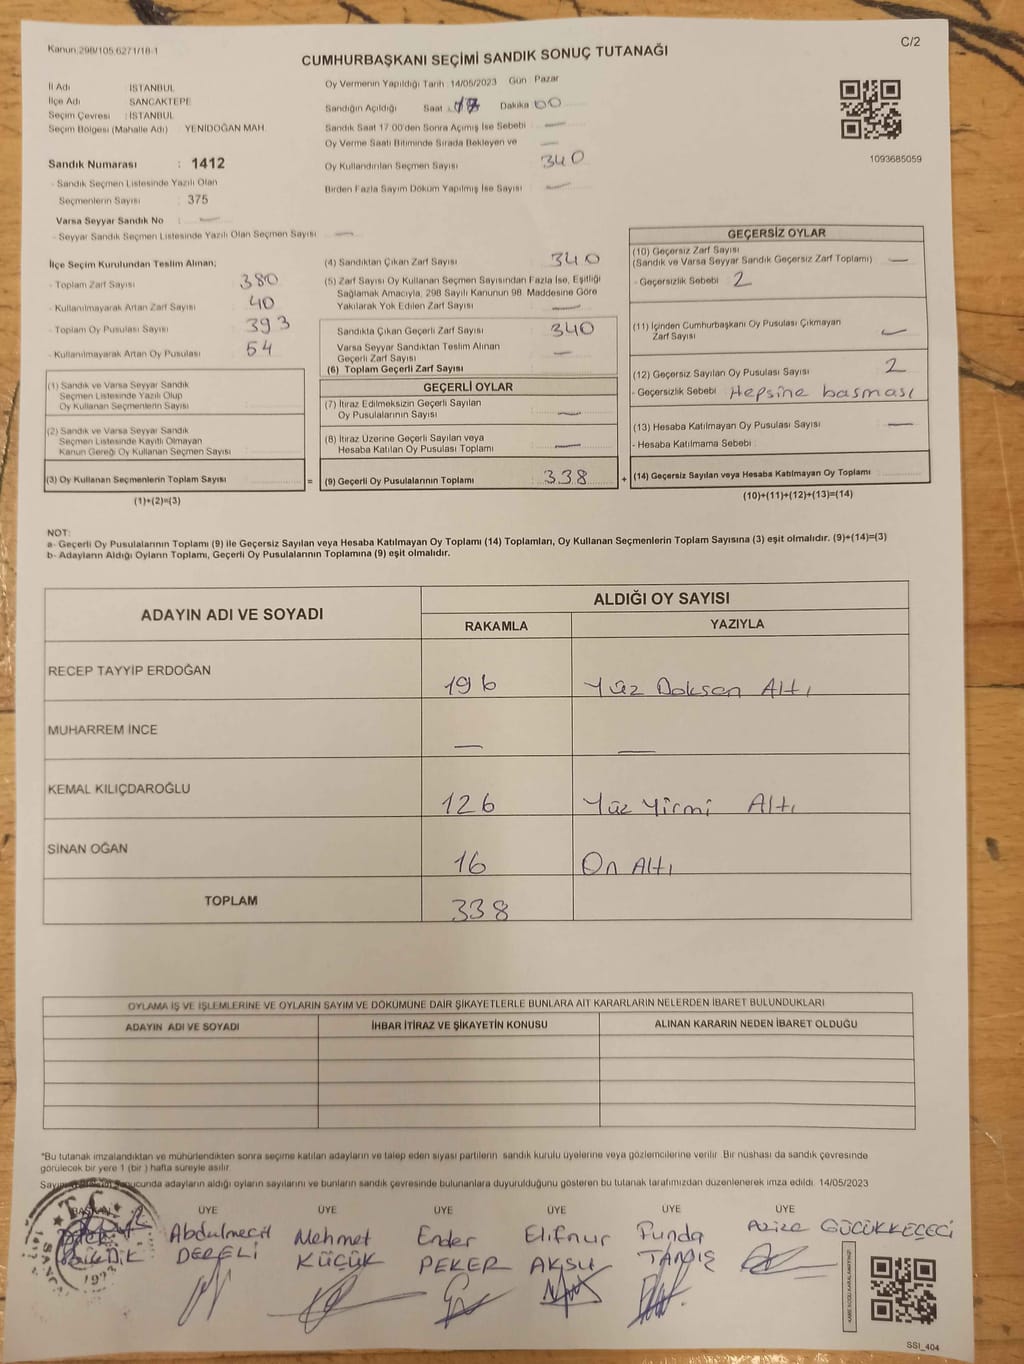 Kanun 298/105 6271/18-1
C/2
CUMHURBAŞKANI SEÇİMİ SANDIK SONUÇ TUTANAĞI
İl Adı İSTANBUL
İlçe Adı SANCAKTEPE
Seçim Çevresi : İSTANBUL
Seçim Bölgesi (Mahalle Adı) YENİDOĞAN MAH.
Oy Vermenin Yapıldığı Tarih 14/05/2023 Gün Pazar
Sandığın Açıldığı Saat : 17 Dakika 00
Sandık Saat 17 00'den Sonra Açımış İse Sebebi —
Oy Verme Saati Bitiminde Sırada Bekleyen ve —
Oy Kullandırılan Seçmen Sayısı 340
Birden Fazla Sayım Döküm Yapılmış İse Sayısı —
1093685059
Sandık Numarası : 1412
- Sandık Seçmen Listesinde Yazılı Olan
Seçmenlerin Sayısı 375
Varsa Seyyar Sandık No : —
- Seyyar Sandık Seçmen Listesinde Yazılı Olan Seçmen Sayısı —
İlçe Seçim Kurulundan Teslim Alınan;
- Toplam Zarf Sayısı 380
- Kullanılmayarak Artan Zarf Sayısı 40
- Toplam Oy Pusulası Sayısı 393
- Kullanılmayarak Artan Oy Pusulası 54
(1) Sandık ve Varsa Seyyar Sandık
Seçmen Listesinde Yazılı Olup
Oy Kullanan Seçmenlerin Sayısı
(2) Sandık ve Varsa Seyyar Sandık
Seçmen Listesinde Kayıtlı Olmayan
Kanun Gereği Oy Kullanan Seçmen Sayısı
(3) Oy Kullanan Seçmenlerin Toplam Sayısı
(1)+(2)=(3)
(4) Sandıktan Çıkan Zarf Sayısı 340
(5) Zarf Sayısı Oy Kullanan Seçmen Sayısından Fazla İse, Eşitliği
Sağlamak Amacıyla, 298 Sayılı Kanunun 98. Maddesine Göre
Yakılarak Yok Edilen Zarf Sayısı —
Sandıkta Çıkan Geçerli Zarf Sayısı 340
Varsa Seyyar Sandıktan Teslim Alınan
Geçerli Zarf Sayısı —
(6) Toplam Geçerli Zarf Sayısı
GEÇERLİ OYLAR
(7) İtiraz Edilmeksizin Geçerli Sayılan
Oy Pusulalarının Sayısı —
(8) İtiraz Üzerine Geçerli Sayılan veya
Hesaba Katılan Oy Pusulası Toplamı —
= (9) Geçerli Oy Pusulalarının Toplamı 338 +
GEÇERSİZ OYLAR
(10) Geçersiz Zarf Sayısı
(Sandık ve Varsa Seyyar Sandık Geçersiz Zarf Toplamı) —
- Geçersizlik Sebebi 2
(11) İçinden Cumhurbaşkanı Oy Pusulası Çıkmayan
Zarf Sayısı —
(12) Geçersiz Sayılan Oy Pusulası Sayısı 2
- Geçersizlik Sebebi Hepsine basması
(13) Hesaba Katılmayan Oy Pusulası Sayısı —
- Hesaba Katılmama Sebebi
(14) Geçersiz Sayılan veya Hesaba Katılmayan Oy Toplamı
(10)+(11)+(12)+(13)=(14)
NOT:
a- Geçerli Oy Pusulalarının Toplamı (9) ile Geçersiz Sayılan veya Hesaba Katılmayan Oy Toplamı (14) Toplamları, Oy Kullanan Seçmenlerin Toplam Sayısına (3) eşit olmalıdır. (9)+(14)=(3)
b- Adayların Aldığı Oyların Toplamı, Geçerli Oy Pusulalarının Toplamına (9) eşit olmalıdır.
ADAYIN ADI VE SOYADI ALDIĞI OY SAYISI
RAKAMLA YAZIYLA
RECEP TAYYİP ERDOĞAN 196 Yüz Doksan Altı
MUHARREM İNCE — —
KEMAL KILIÇDAROĞLU 126 Yüz Yirmi Altı
SİNAN OĞAN 16 On Altı
TOPLAM 338
OYLAMA İŞ VE İŞLEMLERİNE VE OYLARIN SAYIM VE DÖKÜMÜNE DAİR ŞİKAYETLERLE BUNLARA AİT KARARLARIN NELERDEN İBARET BULUNDUKLARI
ADAYIN ADI VE SOYADI İHBAR İTİRAZ VE ŞİKAYETİN KONUSU ALINAN KARARIN NEDEN İBARET OLDUĞU
*Bu tutanak imzalandıktan ve mühürlendikten sonra seçime katılan adayların ve talep eden siyasi partilerin sandık kurulu üyelerine veya gözlemcilerine verilir. Bir nüshası da sandık çevresinde
görülecek bir yere 1 (bir ) hafta süreyle asılır.
sonucunda adayların aldığı oyların sayılarını ve bunların sandık çevresinde bulunanlara duyurulduğunu gösteren bu tutanak tarafımızdan düzenlenerek imza edildi. 14/05/2023
BAŞKAN ÜYE ÜYE ÜYE ÜYE ÜYE ÜYE
Abdulmecit Mehmet Ender Elifnur Funda Azize GÜCÜKKEÇECİ
DERELİ KÜÇÜK PEKER AKSU TANIŞ
T.C.
SSİ_404